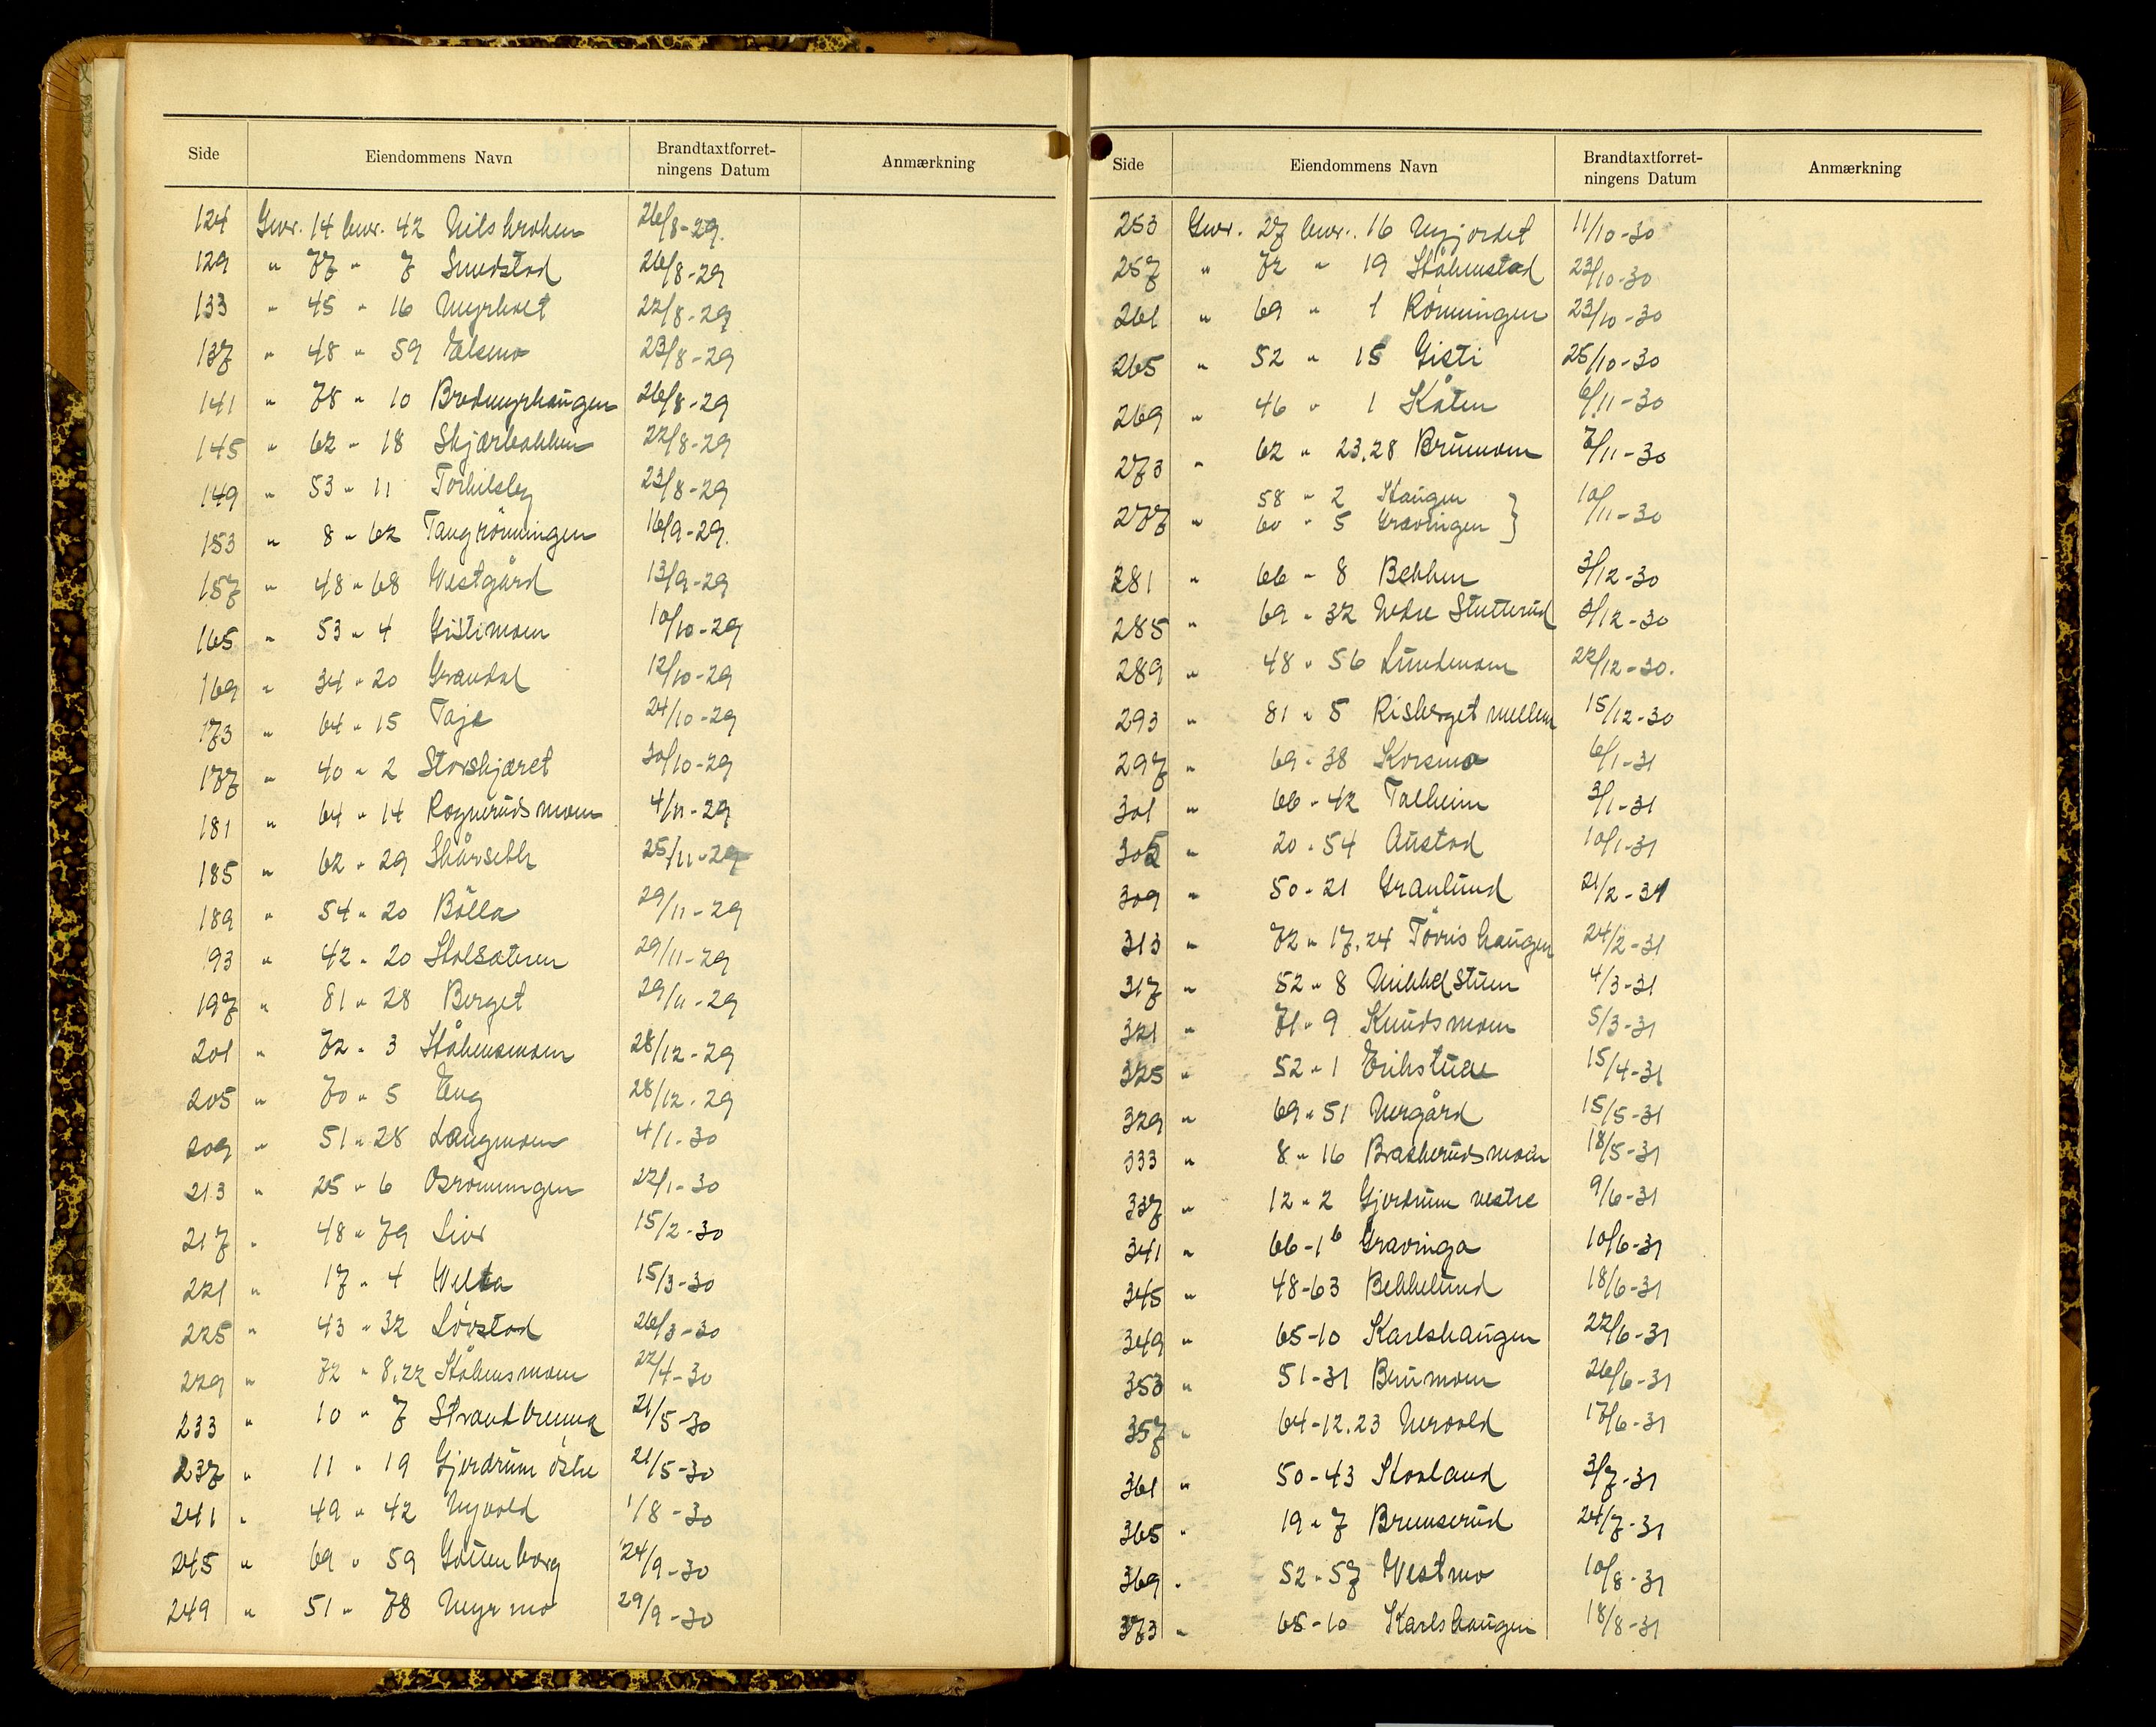 Side Eiendommens Navn Brandtaxtforret-ningens Datum Anmærkning
124 Gnr. 14 bnr. 42 Nilskroken 26/8-29.
129 " 77 " 7 Sundstad 26/8-29
133 " 45 " 16 Myrholt 22/8-29
137 " 48 " 59 Elsmo 23/8-29
141 " 78 " 10 Bredmyrhaugen 26/8-29
145 " 62 " 18 Skjærbakken 22/8-29
149 " 53 " 11 Torkilsby 23/8-29
153 " 8 " 62 Tangrönningen 16/9-29.
157 " 48 " 68 Vestgård 13/9-29
165 " 53 " 4 Gistimoen 10/10-29
169 " 34 " 20 Grandal 12/10-29
173 " 64 " 15 Taje 24/10-29
177 " 40 " 2 Storskjæret 30/10-29
181 " 64 " 14 Rognerudsmoen 4/11-29
185 " 62 " 29 Skårsebk 25/11-29
189 " 54 " 20 Bölla 29/11-29
193 " 42 " 20 Stolsæteren 29/11-29
197 " 81 " 28 Berget 29/11-29
201 " 72 " 3 Ståkensmoen 28/12-29
205 " 70 " 5 Eng 28/12-29
209 " 51 " 28 Langmoen 4/1-30
213 " 25 " 6 Osrönningen 22/1-30
217 " 48 " 79 Lier 15/2-30
221 " 17 " 4 Velta 15/3-30
225 " 43 " 32 Lövstad 26/3-30
229 " 72 " 8.22 Ståkensmoen 22/4-30
233 " 10 " 7 Strandbrenna 21/5-30
237 " 11 " 19 Gjerdrum östre 21/5-30
241 " 49 " 42 Nyvold 1/8-30
245 " 69 " 59 Gautenborg 24/9-30
249 " 51 " 78 Myrmo 29/9-30
Side Eiendommens Navn Brandtaxtforret-ningens Datum Anmærkning
253 Gnr. 27 bnr. 16 Nyjordet 11/10-30
257 " 72 " 19 Ståkenstad 23/10-30
261 " 69 " 1 Rönningen 23/10-30
265 " 52 " 15 Gisti 25/10-30
269 " 46 " 1 Kåten 6/11-30
273 " 62 " 23.28 Brumoen 7/11-30
277 " 58 " 2 Haugen } 10/11-30
60 " 5 Gravlingen
281 " 66 " 8 Bekken 3/12-30
285 " 69 " 32 Nedre Stutterud 3/12-30
289 " 48 " 56 Lundmoen 22/12-30.
293 " 81 " 5 Risberget mellem 15/12-30
297 " 69 " 38 Korsmo 6/1-31
301 " 66 " 42 Solheim 3/1-31
305 " 20 " 54 Austad 10/1-31
309 " 50 " 21 Granlund 21/2-31
313 " 72 " 17.24 Tövrishaugen 24/2-31
317 " 52 " 8 Mikkelstuen 4/3-31
321 " 71 " 9 Knudsmoen 5/3-31
325 " 52 " 1 Erikstuen 15/4-31
329 " 69 " 51 Nergård 15/5-31
333 " 8 " 16 Braskerudsmoen 18/5-31
337 " 12 " 2 Gjerdrum vestre 9/6-31
341 " 66-16 Gravinga 10/6-31
345 " 48-63 Bekkelund 18/6-31
349 " 65-10 Karlshaugen 22/6-31
353 " 51-31 Brumoen 26/6-31
357 " 64-12.23 Nervold 17/6-31
361 " 50-43 Storland 3/7-31
365 " 19 " 7 Brunserud 24/7-31
369 " 52-57 Vestmo 10/8-31
373 " 65-10 Karlshaugen 18/8-31